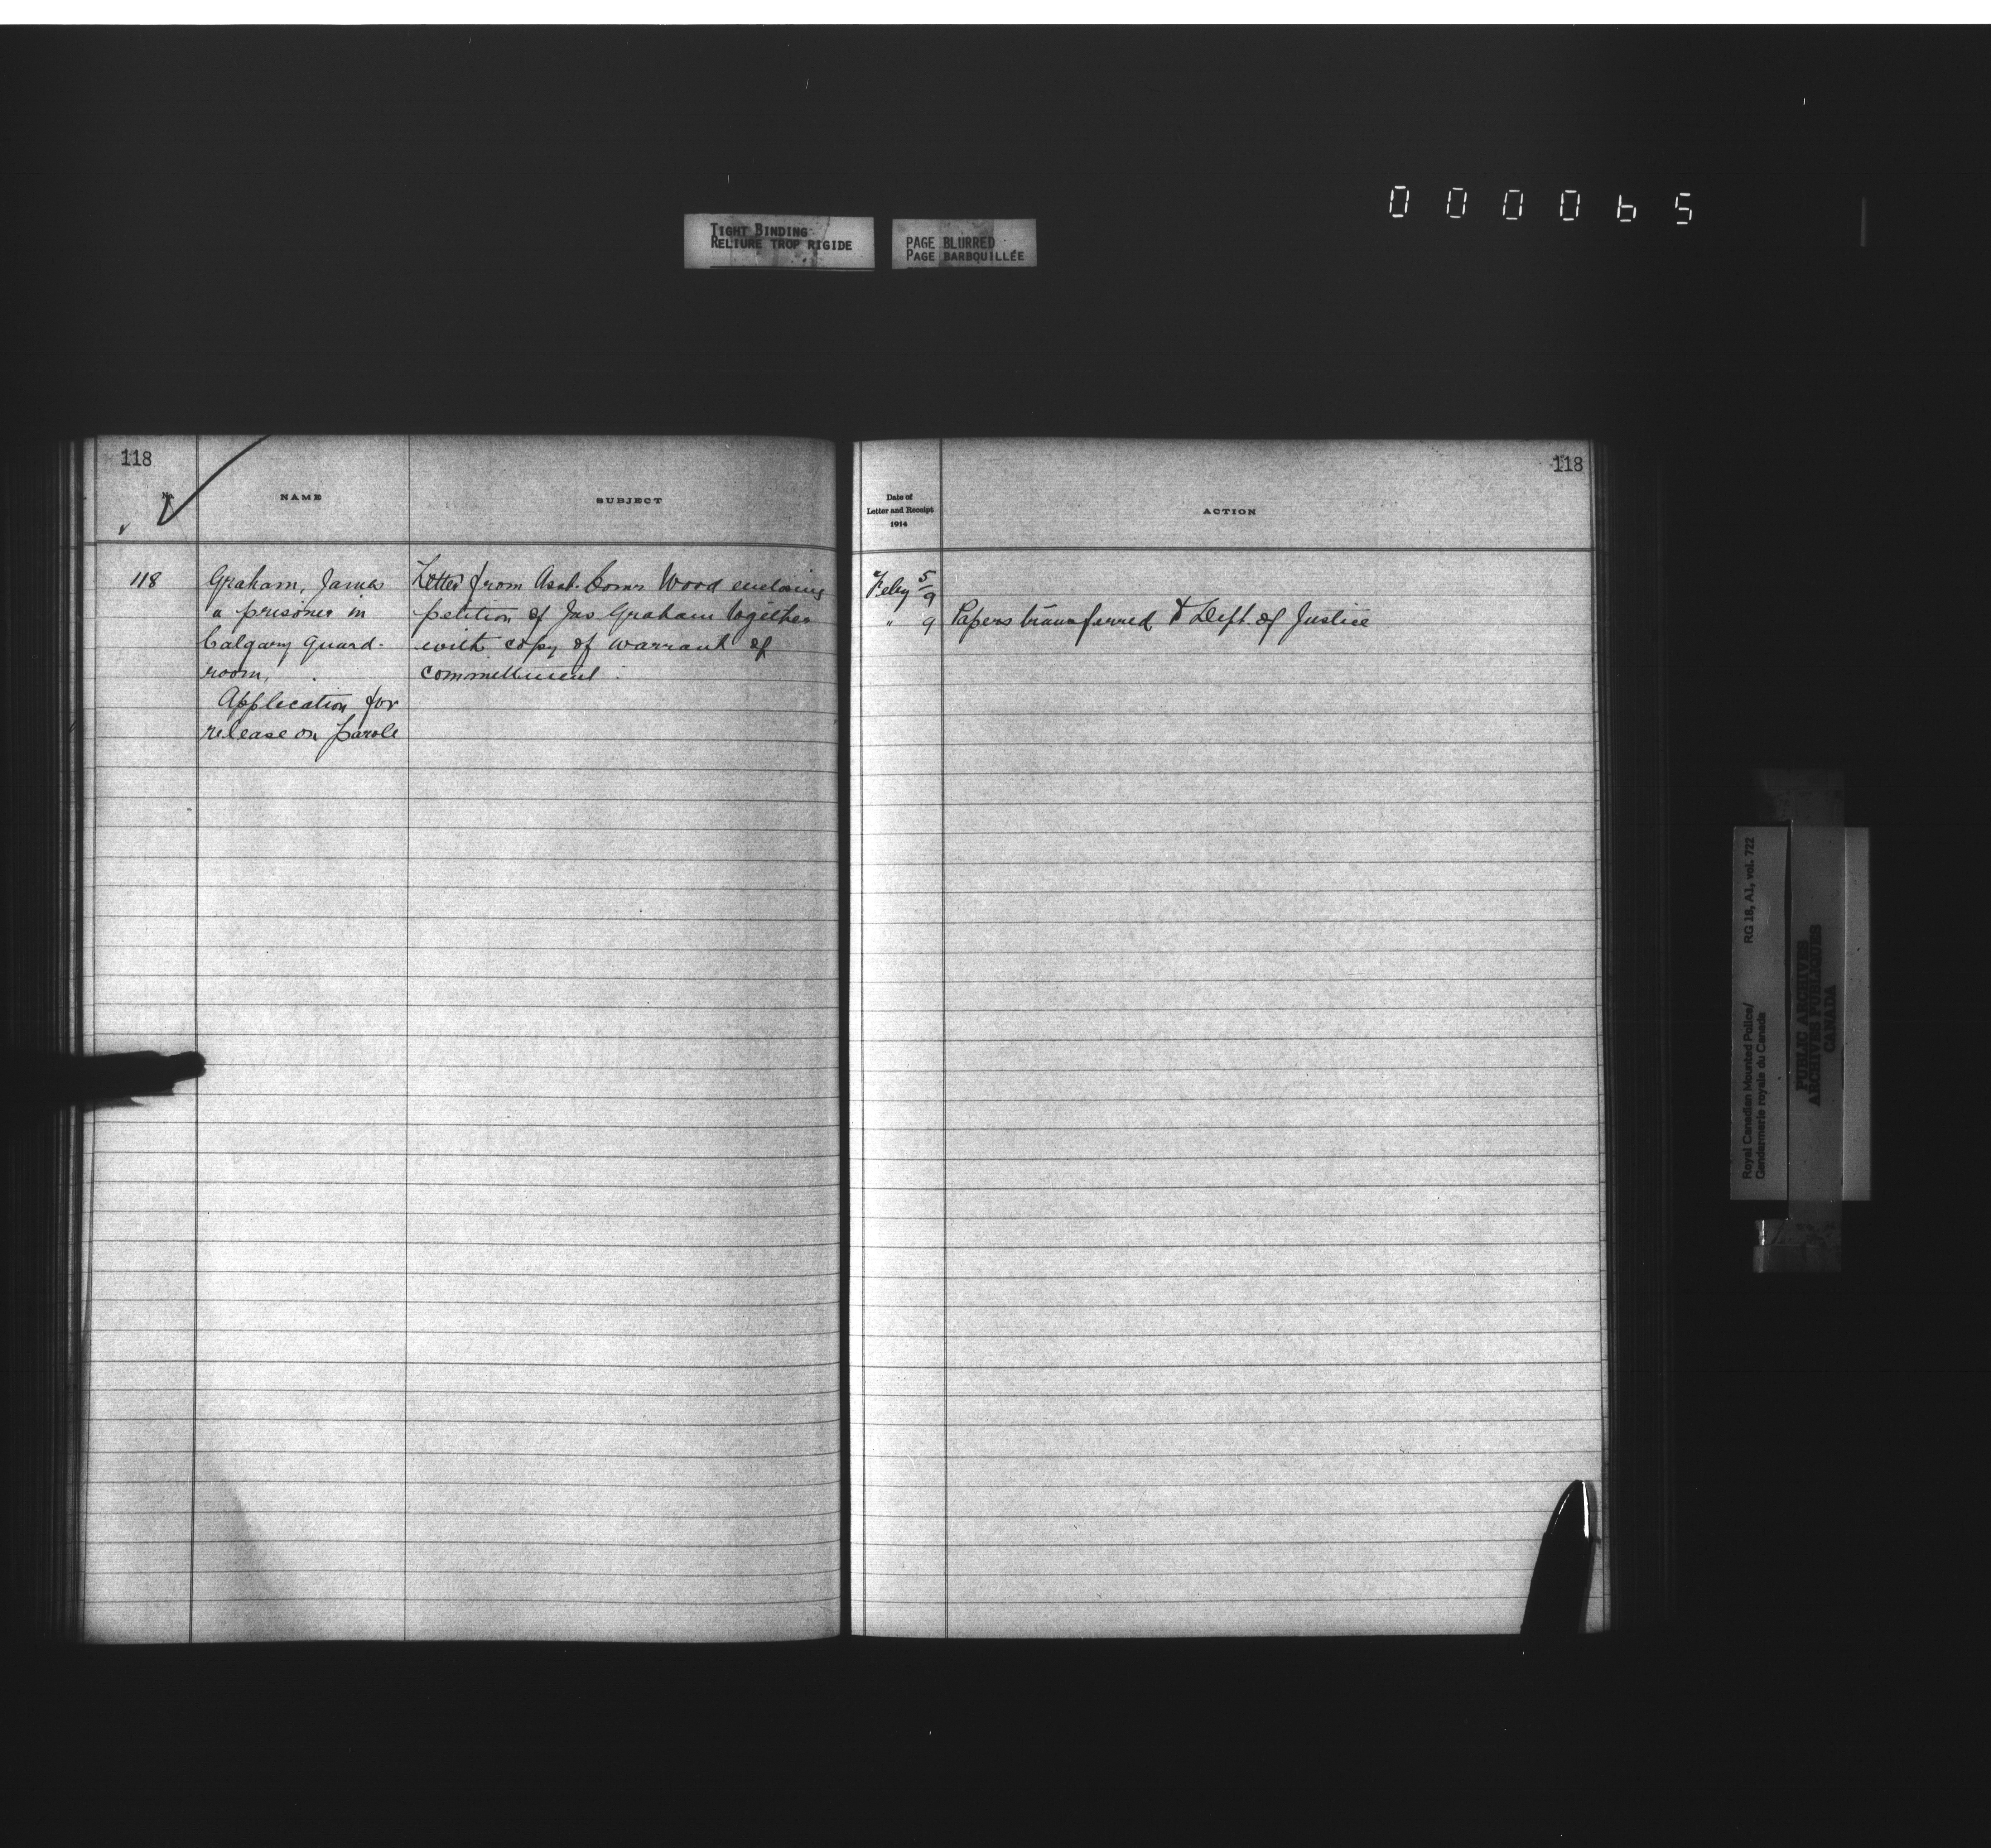 000065
TIGHT BINDING
RELIURE TROP RIGIDE
PAGE BLURRED
PAGE BARBOUILLÉE
118
No.
NAME
SUBJECT
118
Graham, James
a prisoner in
Calgary Guard-
room.
Application for
release on parole
Letter from Asst. Comr Wood enclosing
petition of Jas Graham together
with copy of warrant of
committment.
118
Date of
Letter and Receipt
1914
ACTION
Feby 5/9
" 9 Papers transferred to Dept. of Justice
Royal Canadian Mounted Police/ RG 18, A1, vol. 722
Gendarmerie royale du Canada
PUBLIC ARCHIVES
ARCHIVES PUBLIQUES
CANADA